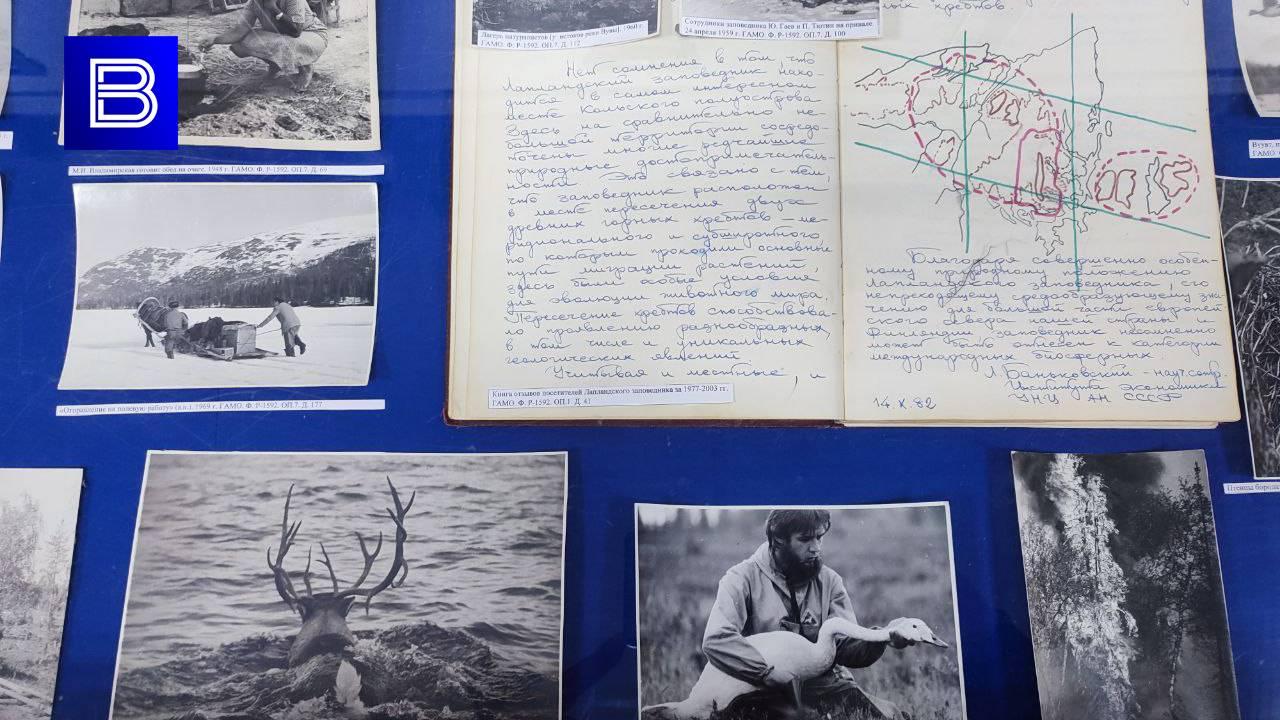 B
М.И. Владимирская готовит обед на очаге. 1948 г. ГАМО. Ф. Р-1592. ОП.7. Д. 69
«Отправление на полевую работу» 1969 г. ГАМО. Ф. Р-1592. ОП.7. Д. 177
Лагерь натуралистов (у истоков реки Вувы). 1960 г.
ГАМО. Ф. Р-1592. ОП.7. Д. 112
Сотрудники заповедника Ю. Гаев и П. Тютин на привале
24 апреля 1959 г. ГАМО. Ф. Р-1592. ОП.7. Д. 100
Нет сомнения в том, что
Лапландский заповедник нахо-
дится в самом интересном
месте Кольского полуострова
Здесь на сравнительно не-
большой территории сосредо-
точены многие редчайшие
природные достопримечатель-
ности. Это связано с тем,
что заповедник расположен
в месте пересечения двух
древних горных хребтов – ме-
ридионального и субширотного
по которым проходили основные
пути миграции растений,
здесь были особые условия
для эволюции животного мира.
Пересечение хребтов способствова-
ло проявлению разнообразных,
в том числе и уникальных,
геологических явлений.
Учитывая и местные, и
Книга отзывов посетителей Лапландского заповедника за 1977-2003 гг.
ГАМО. Ф. Р-1592. ОП.1. Д. 41
хребтов.
Благодаря совершенно особен-
ному природному положению
Лапландского заповедника, его
непреходящему средообразующему зна-
чению для большой части европей-
ского севера нашей страны и
Финляндии заповедник несомненно
может быть отнесен к категории
международных биосферных.
Л. Баньковский – науч. сотр.
Института экономики
УНЦ АН СССР
14.X.82
ГАМО.
Птенцы